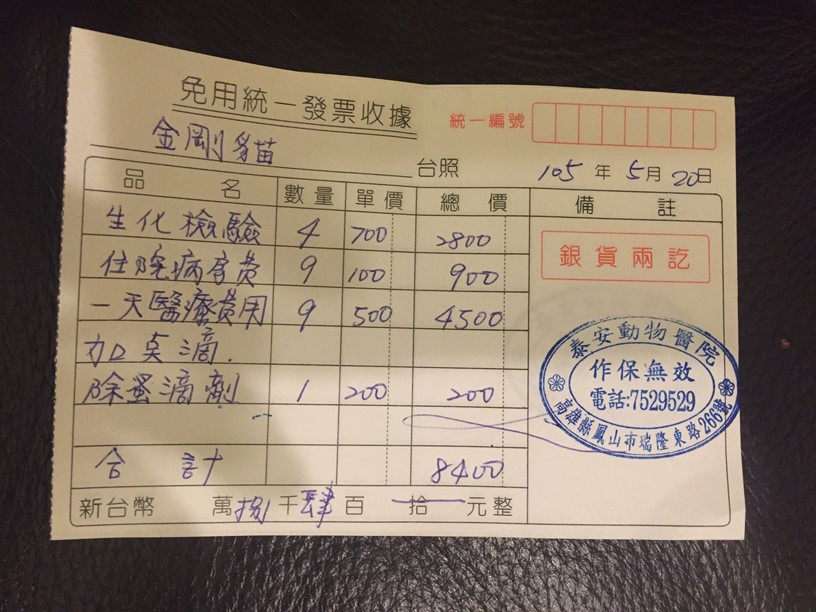 免用統一發票收據
統一編號
金剛貓 台照
105年5月20日
品名 數量 單價 總價 備註
生化檢驗 4 700 2800
住院病房費 9 100 900
一天醫療費用 9 500 4500
加 滴
除蚤滴劑 1 200 200
合計 8400
新台幣 萬捌千肆百 拾 元整
銀貨兩訖
泰安動物醫院
作保無效
電話:7529529
高雄縣鳳山市瑞隆東路266號